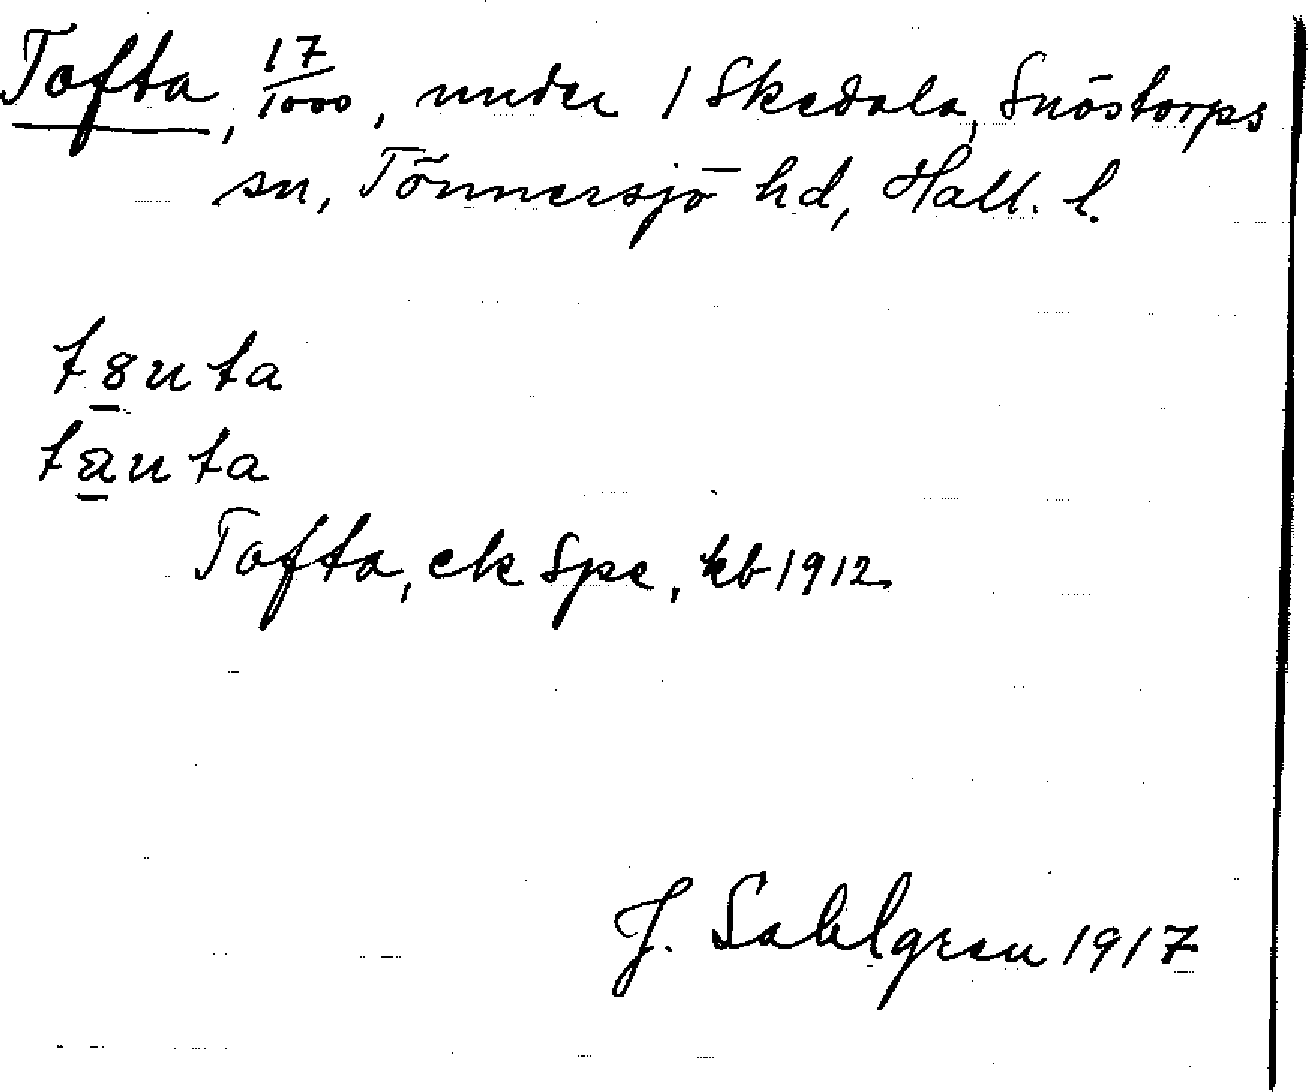 Tofta, 17/1000, under 1 Skedala, Snöstorps
sn, Tönnersjö hd, Hall. l.
t8uta
tauta
Tofta, ek Spe, kb 1912
J. Sahlgren 1917